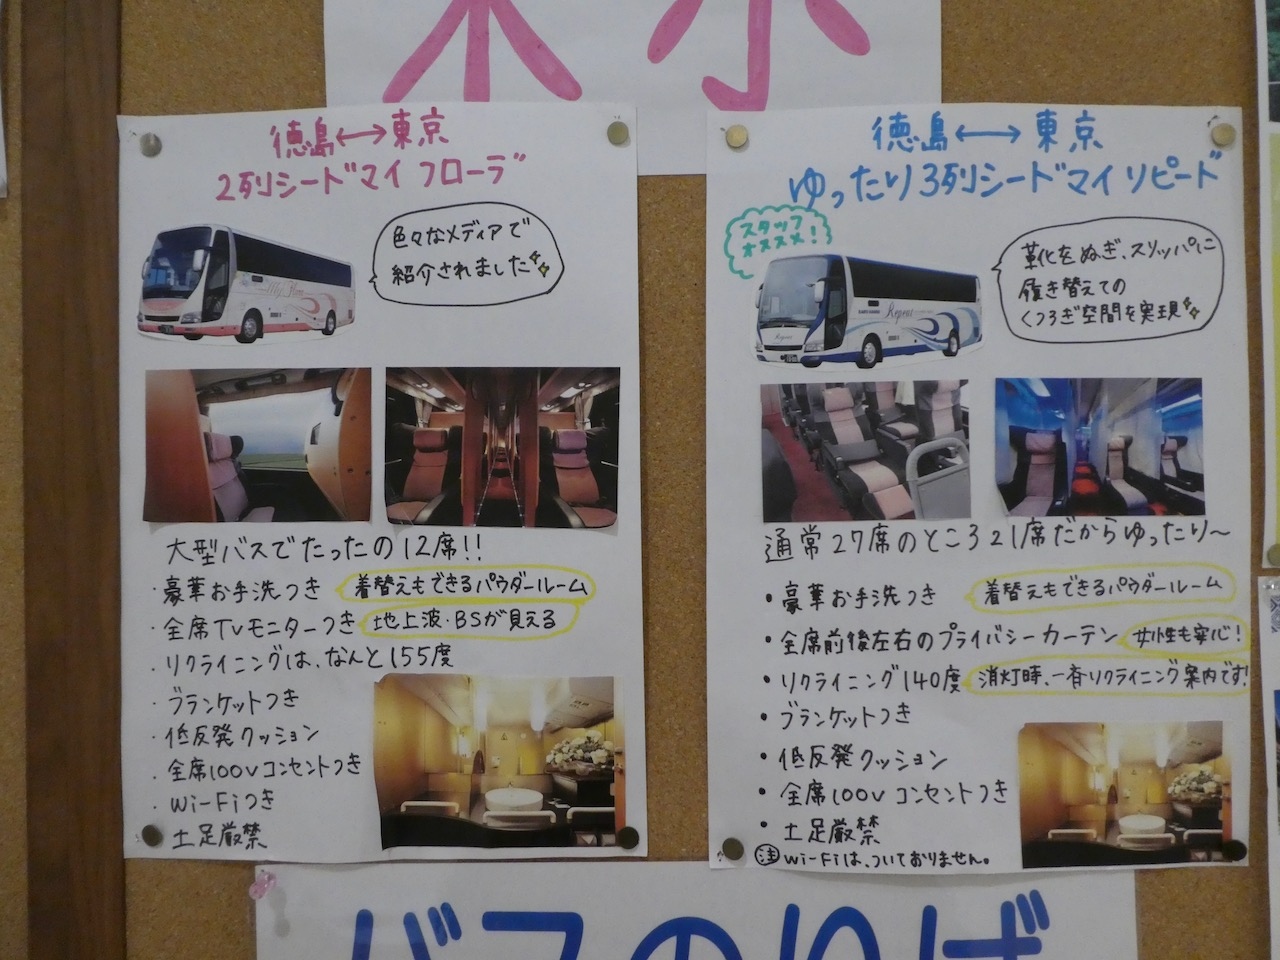 東京
徳島↔東京
2列シートﾞマイ フローラ
色々なメディアで
紹介されました
My Flora
大型バスでたったの12席!!
・豪華お手洗つき 着替えもできるパウダールーム
・全席TVモニターつき 地上波・BSが見える
・リクライニングは、なんと155度
・ブランケットつき
・低反発クッション
・全席100Vコンセントつき
・Wi-Fiつき
・土足厳禁
徳島↔東京
ゆったり3列シートﾞマイ リピート
スタッフ
オススメ!
靴をぬぎ、スリッパに
履き替えての
くつろぎ空間を実現
Repeat
通常27席のところ21席だからゆったり〜
・豪華お手洗つき 着替えもできるパウダールーム
・全席前後左右のプライバシーカーテン 女性も安心!
・リクライニング140度 消灯時、一斉リクライニング案内です!
・ブランケットつき
・低反発クッション
・全席100Vコンセントつき
・土足厳禁
注 Wi-Fiは、ついておりません。
バスのりば